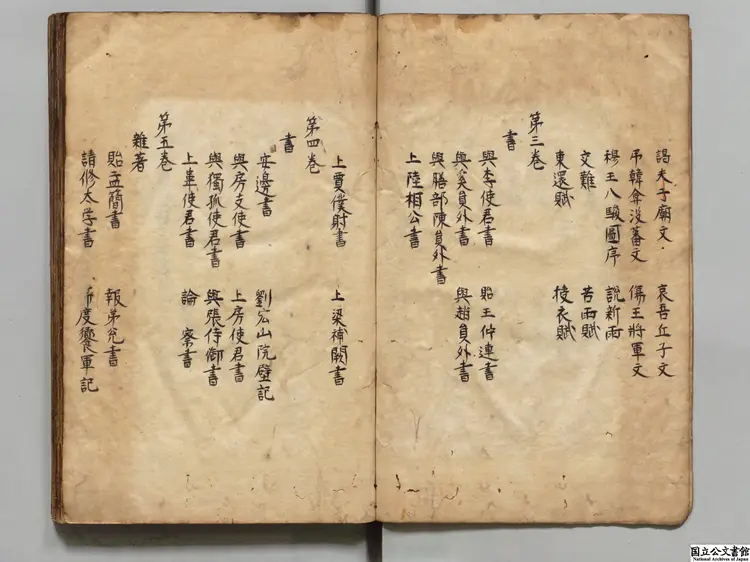 謁夫子廟文 哀吾丘子文
弔韓弇没蕃文 傷王將軍文
穆王八駿圖序 說新雨
文難 苦雨賦
東還賦 授衣賦
第三卷
書
與李使君書 貽王仲連書
與奚員外書 與趙員外書
與膳部陳員外書
上陸相公書
上賈僕射書 上梁補闕書
第四卷
書
安邊書 劉宏山院壁記
與房支使書 上房使君書
與獨孤使君書 與張侍御書
上韋使君書 論 察書
第五卷
雜著
貽孟簡書 報弟兌書
請修太学書 度饗軍記
国立公文書館
National Archives of Japan